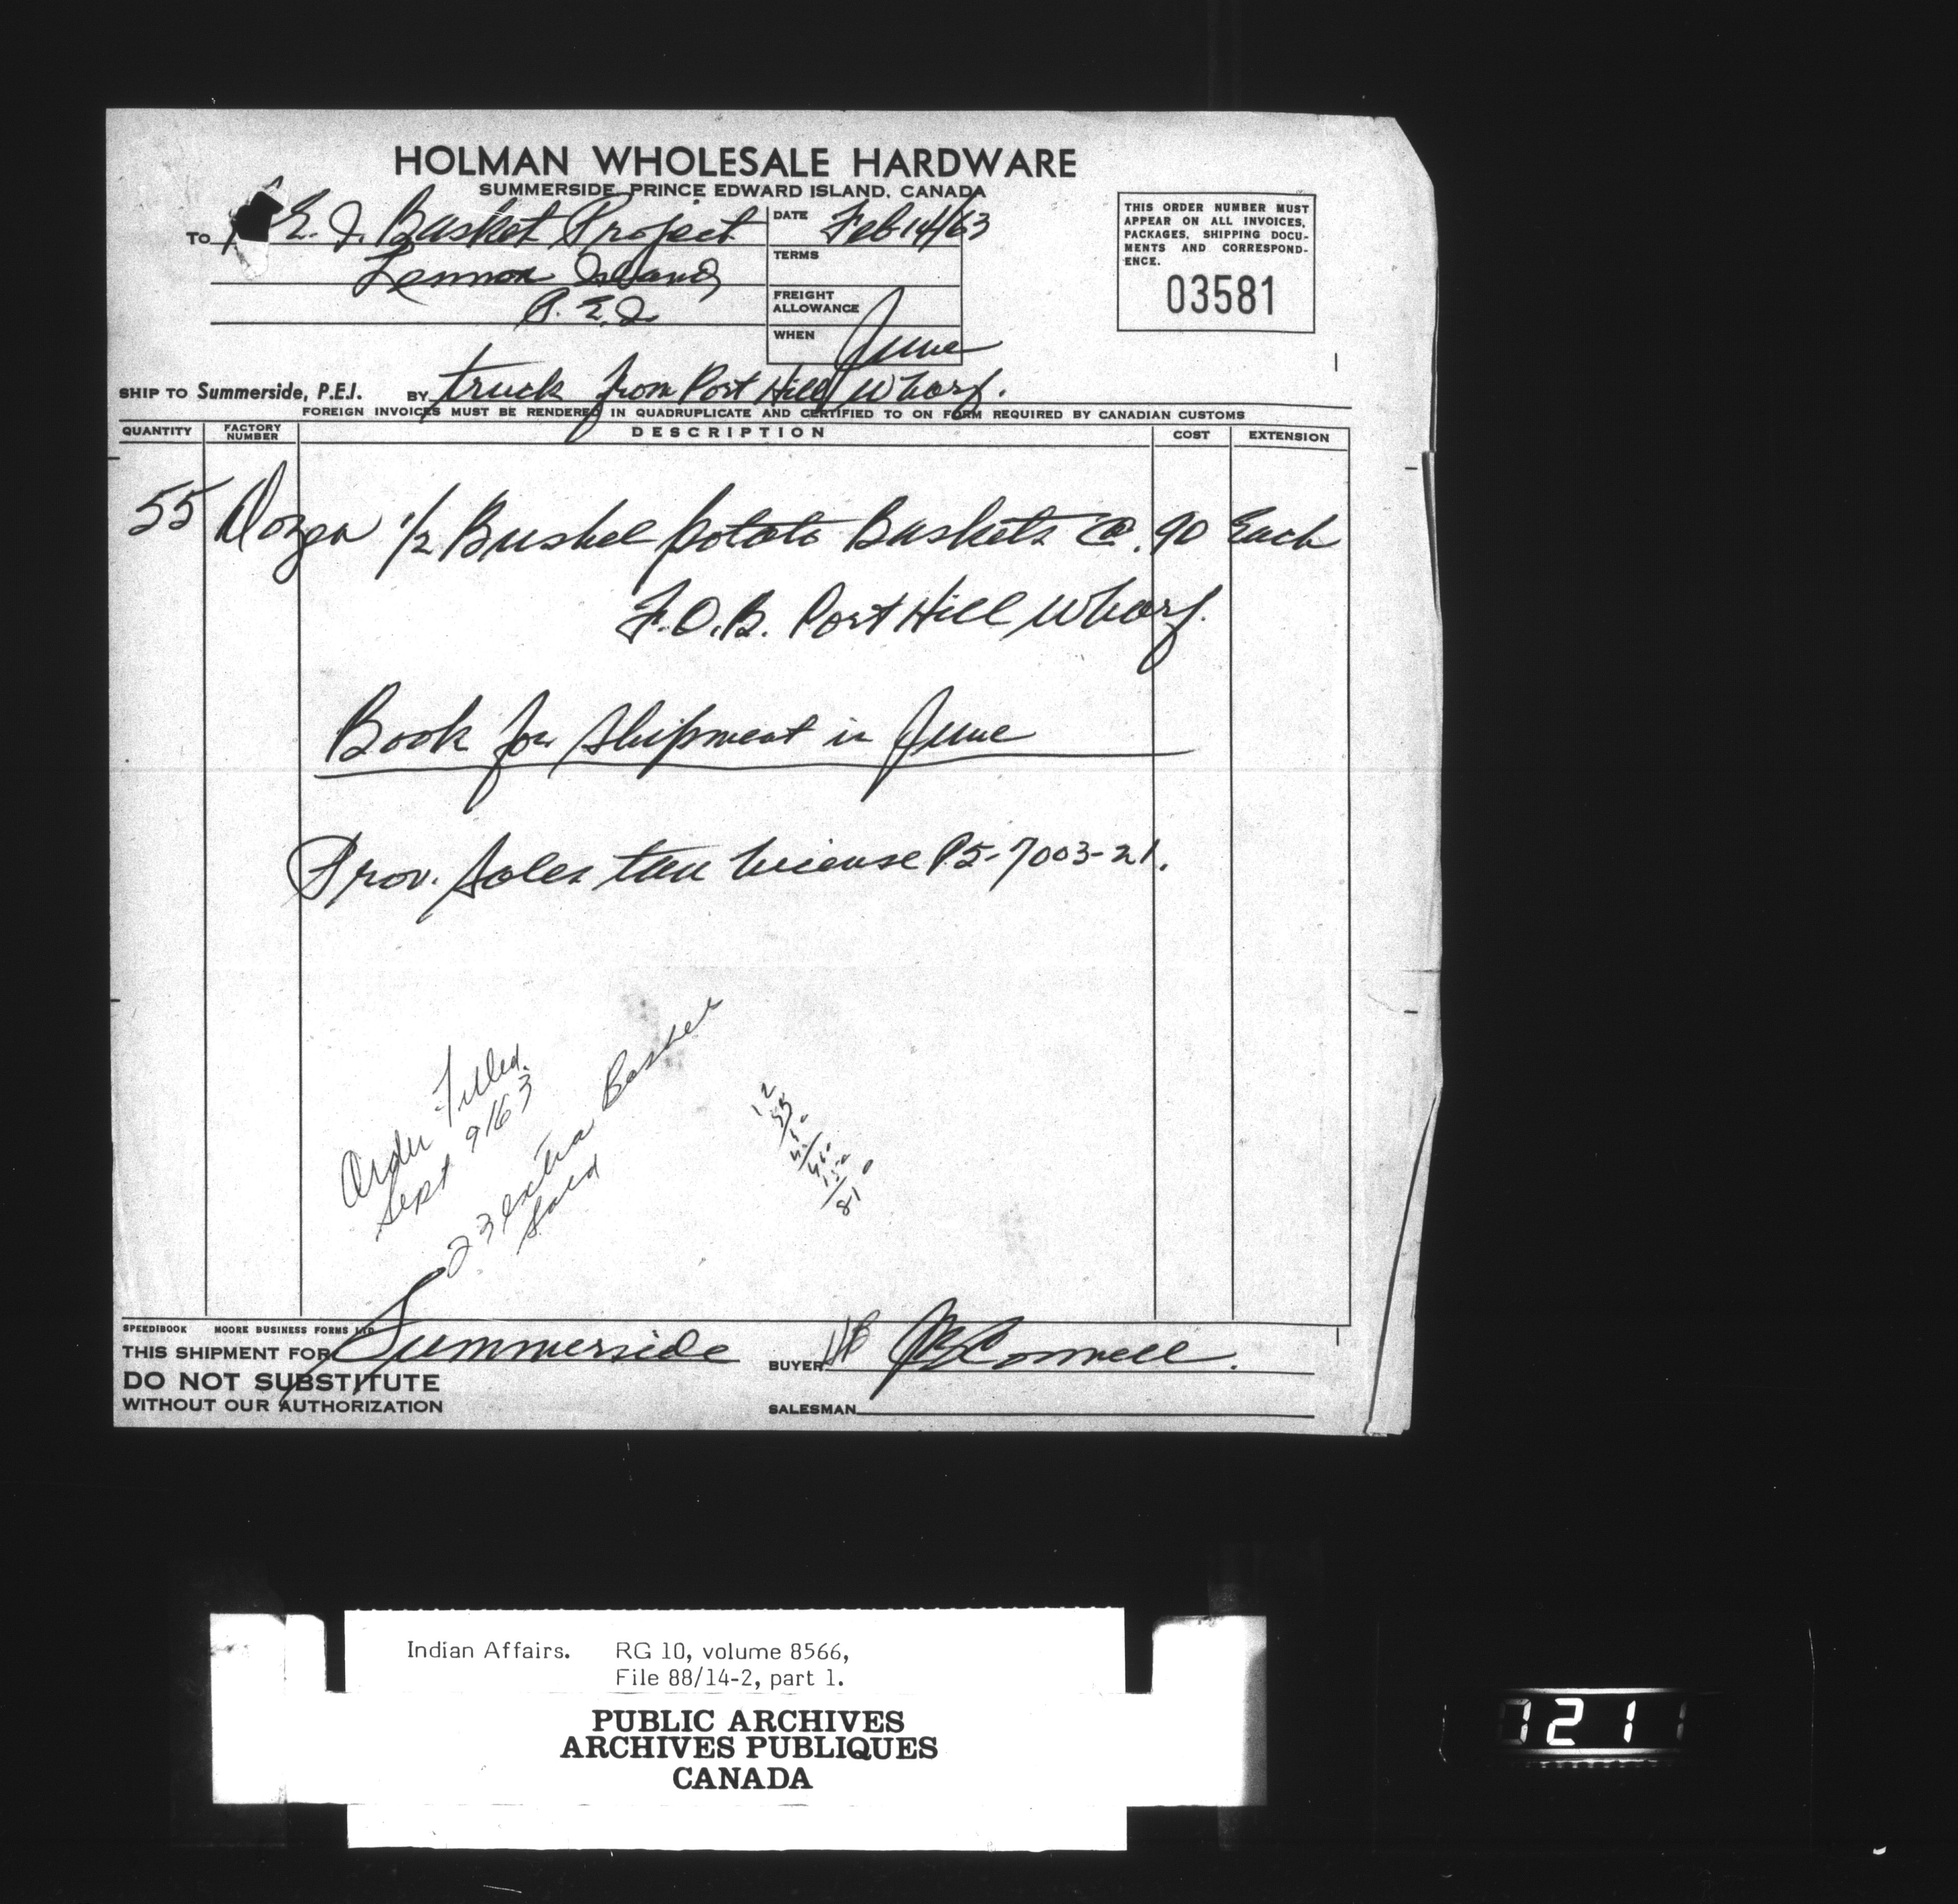 HOLMAN WHOLESALE HARDWARE
SUMMERSIDE, PRINCE EDWARD ISLAND, CANADA
TO E. I. Basket Project
Lennox Island
P. E. I.
DATE Feb 14/63
TERMS
FREIGHT ALLOWANCE
WHEN June
THIS ORDER NUMBER MUST
APPEAR ON ALL INVOICES,
PACKAGES, SHIPPING DOCU-
MENTS AND CORRESPOND-
ENCE.
03581
SHIP TO Summerside, P.E.I. BY truck from Port Hill Wharf.
FOREIGN INVOICES MUST BE RENDERED IN QUADRUPLICATE AND CERTIFIED TO ON FORM REQUIRED BY CANADIAN CUSTOMS
QUANTITY FACTORY NUMBER DESCRIPTION COST EXTENSION
55 Dozen 1/2 Bushel potato Baskets @ .90 Each
F.O.B. Port Hill Wharf.
Book for shipment in June
Prov. Sales tax license P5-7003-21.
Order Filled.
Sept 9/63
23 extra Basket
Sold
12
55
SPEEDIBOOK MOORE BUSINESS FORMS LTD.
THIS SHIPMENT FOR Summerside
BUYER McConnell.
DO NOT SUBSTITUTE
WITHOUT OUR AUTHORIZATION
SALESMAN
Indian Affairs. RG 10, volume 8566,
File 88/14-2, part 1.
PUBLIC ARCHIVES
ARCHIVES PUBLIQUES
CANADA